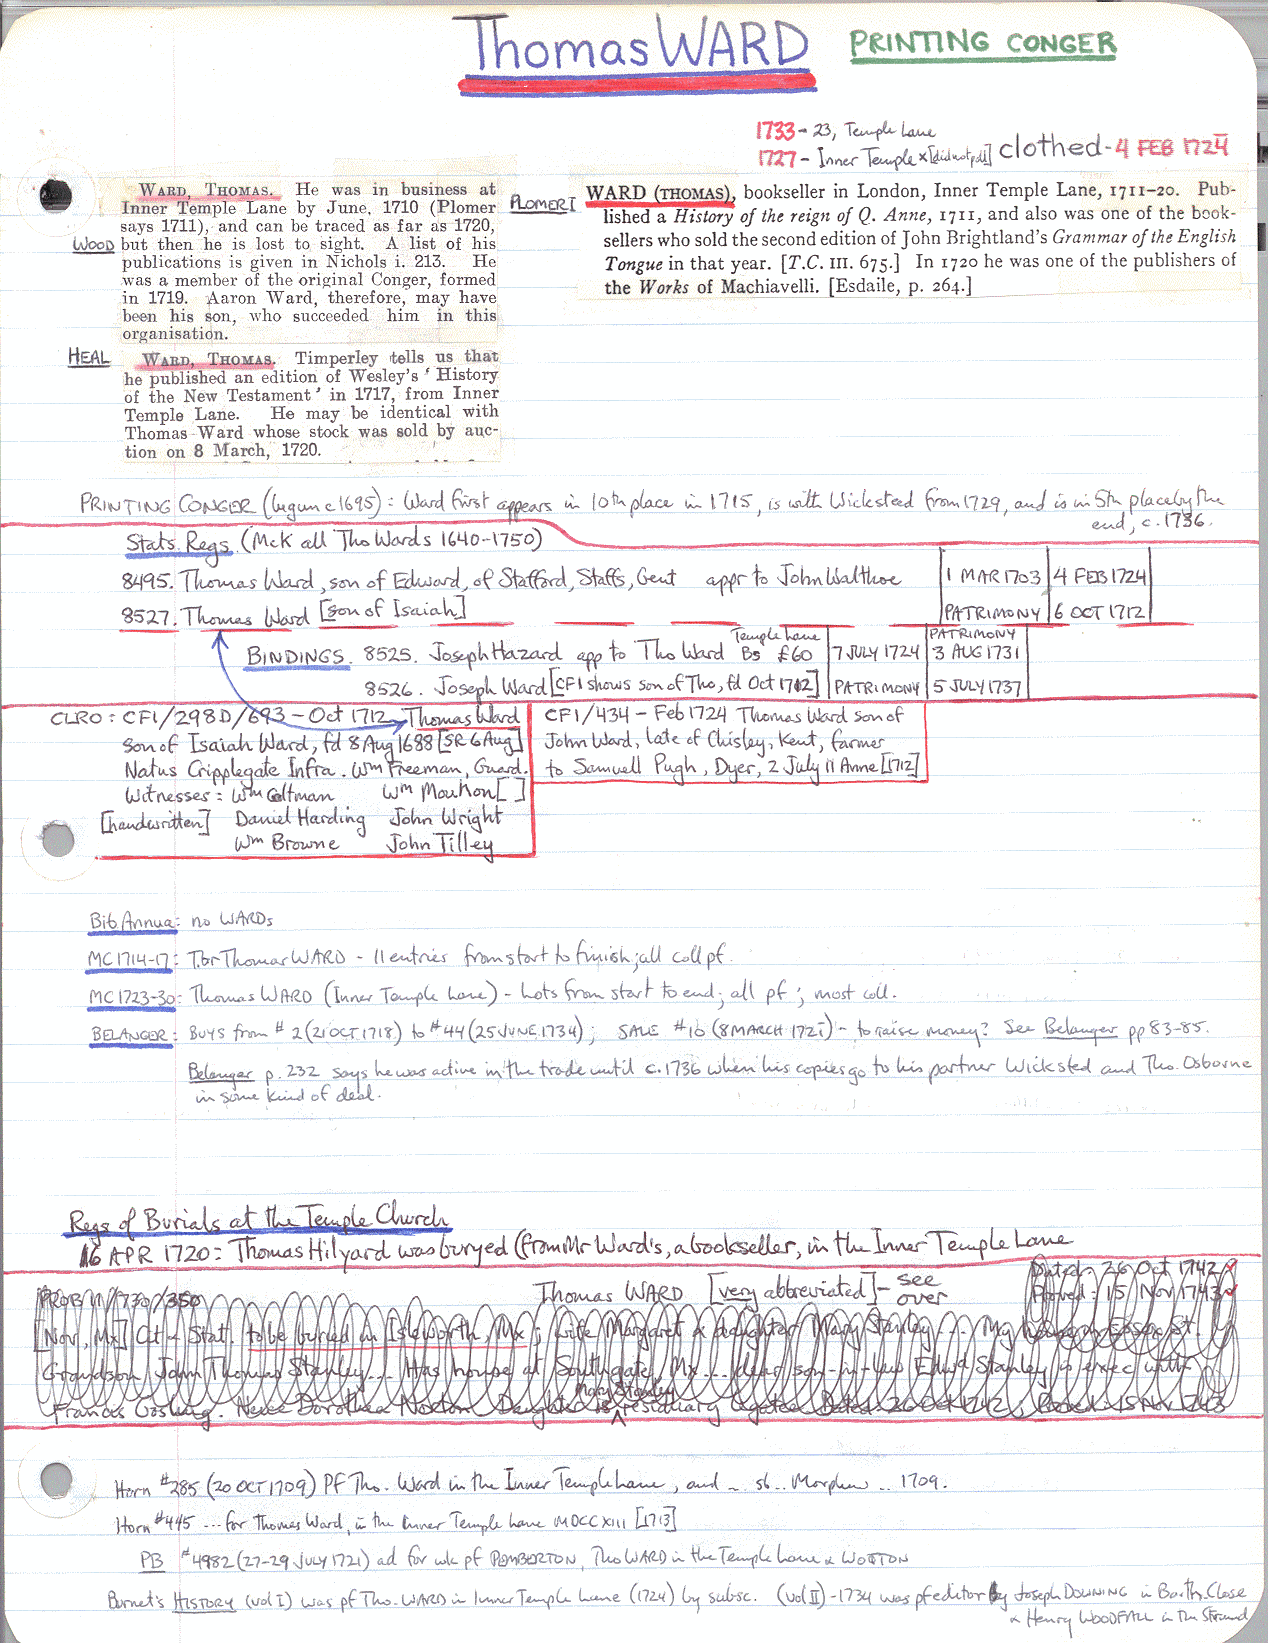 Thomas WARD PRINTING CONGER
1733 - 23, Temple Lane
1727 - Inner Temple x [did not pd] clothed - 4 FEB 1724
WARD, THOMAS. He was in business at
Inner Temple Lane by June, 1710 (Plomer
says 1711), and can be traced as far as 1720,
WOOD but then he is lost to sight. A list of his
publications is given in Nichols i. 213. He
was a member of the original Conger, formed
in 1719. Aaron Ward, therefore, may have
been his son, who succeeded him in this
organisation.
PLOMER I WARD (THOMAS), bookseller in London, Inner Temple Lane, 1711-20. Pub-
lished a History of the reign of Q. Anne, 1711, and also was one of the book-
sellers who sold the second edition of John Brightland's Grammar of the English
Tongue in that year. [T.C. III. 675.] In 1720 he was one of the publishers of
the Works of Machiavelli. [Esdaile, p. 264.]
HEAL WARD, THOMAS. Timperley tells us that
he published an edition of Wesley's ' History
of the New Testament ' in 1717, from Inner
Temple Lane. He may be identical with
Thomas Ward whose stock was sold by auc-
tion on 8 March, 1720.
PRINTING CONGER (begun c1695): Ward first appears in 10th place in 1715, is with Wicksteed from 1729, and is in 5th place by the
end, c.1736.
Stats. Regs. (McK all Tho Wards 1640-1750)
8495. Thomas Ward, son of Edward, of Stafford, Staffs, Gent appr to John Walthoe 1 MAR 1703 4 FEB 1724
8527. Thomas Ward [son of Isaiah] PATRIMONY 6 OCT 1712
Temple Lane PATRIMONY
BINDINGS. 8525. Joseph Hazard app to Tho Ward BS £60 7 JULY 1724 3 AUG 1731
8526. Joseph Ward [CF1 shows son of Tho, fd Oct 1712] PATRIMONY 5 JULY 1737
CLRO: CF1/298D/693 - Oct 1712 Thomas Ward
son of Isaiah Ward, fd 8 Aug 1688 [SR 6 Aug]
Natus Cripplegate Infra. Wm Freeman, Guard.
Witnesses: Wm Coltman Wm Mouhon [ ]
[handwritten] Daniel Harding John Wright
Wm Browne John Tilley
CF1/434 - Feb 1724 Thomas Ward son of
John Ward, late of Chisley, Kent, farmer
to Samuell Pugh, Dyer, 2 July 11 Anne [1712]
Bib Annua: no WARDs
MC 1714-17: T. or Thomas WARD - 11 entries from start to finish; all coll pf.
MC 1723-30: Thomas WARD (Inner Temple Lane) - Lots from start to end; all pf; most coll.
BELANGER: BUYS from #2 (21 OCT 1718) to #44 (25 JUNE 1734); SALE #16 (8 MARCH 1721) - to raise money? See Belanger pp 83-85.
Belanger p. 232 says he was active in the trade until c.1736 when his copies go to his partner Wicksted and Tho. Osborne
in some kind of deal.
Regs of Burials at the Temple Church
16 APR 1720: Thomas Hilyard was buryed (from Mr Ward's, a bookseller, in the Inner Temple Lane
PROB 11/730/350 Thomas WARD [very abbreviated] - see over Dated: 26 Oct 1742 Proved: 15 Nov 1743
[Nov, Mx] Cit & Stat. to be buried in Isleworth, Mx; wife Margaret & daughter Mary Stanley ... My house in Essex St.
Grandson John Thomas Stanley... Has house at Southgate, Mx ... dear son-in-law Edwd Stanley is exec with
Mary Stanley
Francis Gosling. Neice Dorothea Norton. Daughter is residuary legatee. Dated 26 Oct 1742; Proved 15 Nov 1743
Horn #285 (20 OCT 1709) Pf Tho. Ward in the Inner Temple Lane, and .. sb .. Morphew .. 1709.
Horn #445 ... for Thomas Ward, in the Inner Temple Lane MDCCXIII [1713]
PB #4982 (27-29 JULY 1721) ad for wk pf PEMBERTON, Tho WARD in the Temple Lane & WOTTON
Burnet's HISTORY (vol I) was pf Tho. WARD in Inner Temple Lane (1724) by subsc. (vol II) - 1734 was pf editor by Joseph DOWNING in Barth. Close
& Henry WOODFALL in the Strand